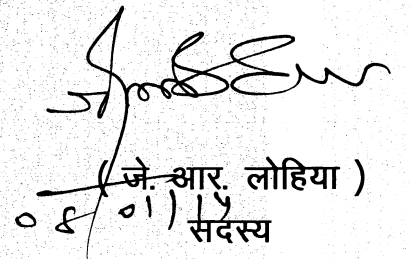 ( जे. आर. लोहिया )
08/01/15
सदस्य